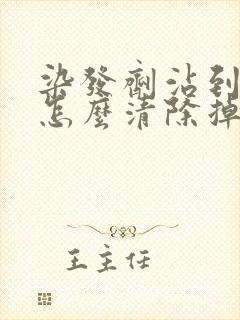 染發劑沾到
怎麼清除掉
王主任